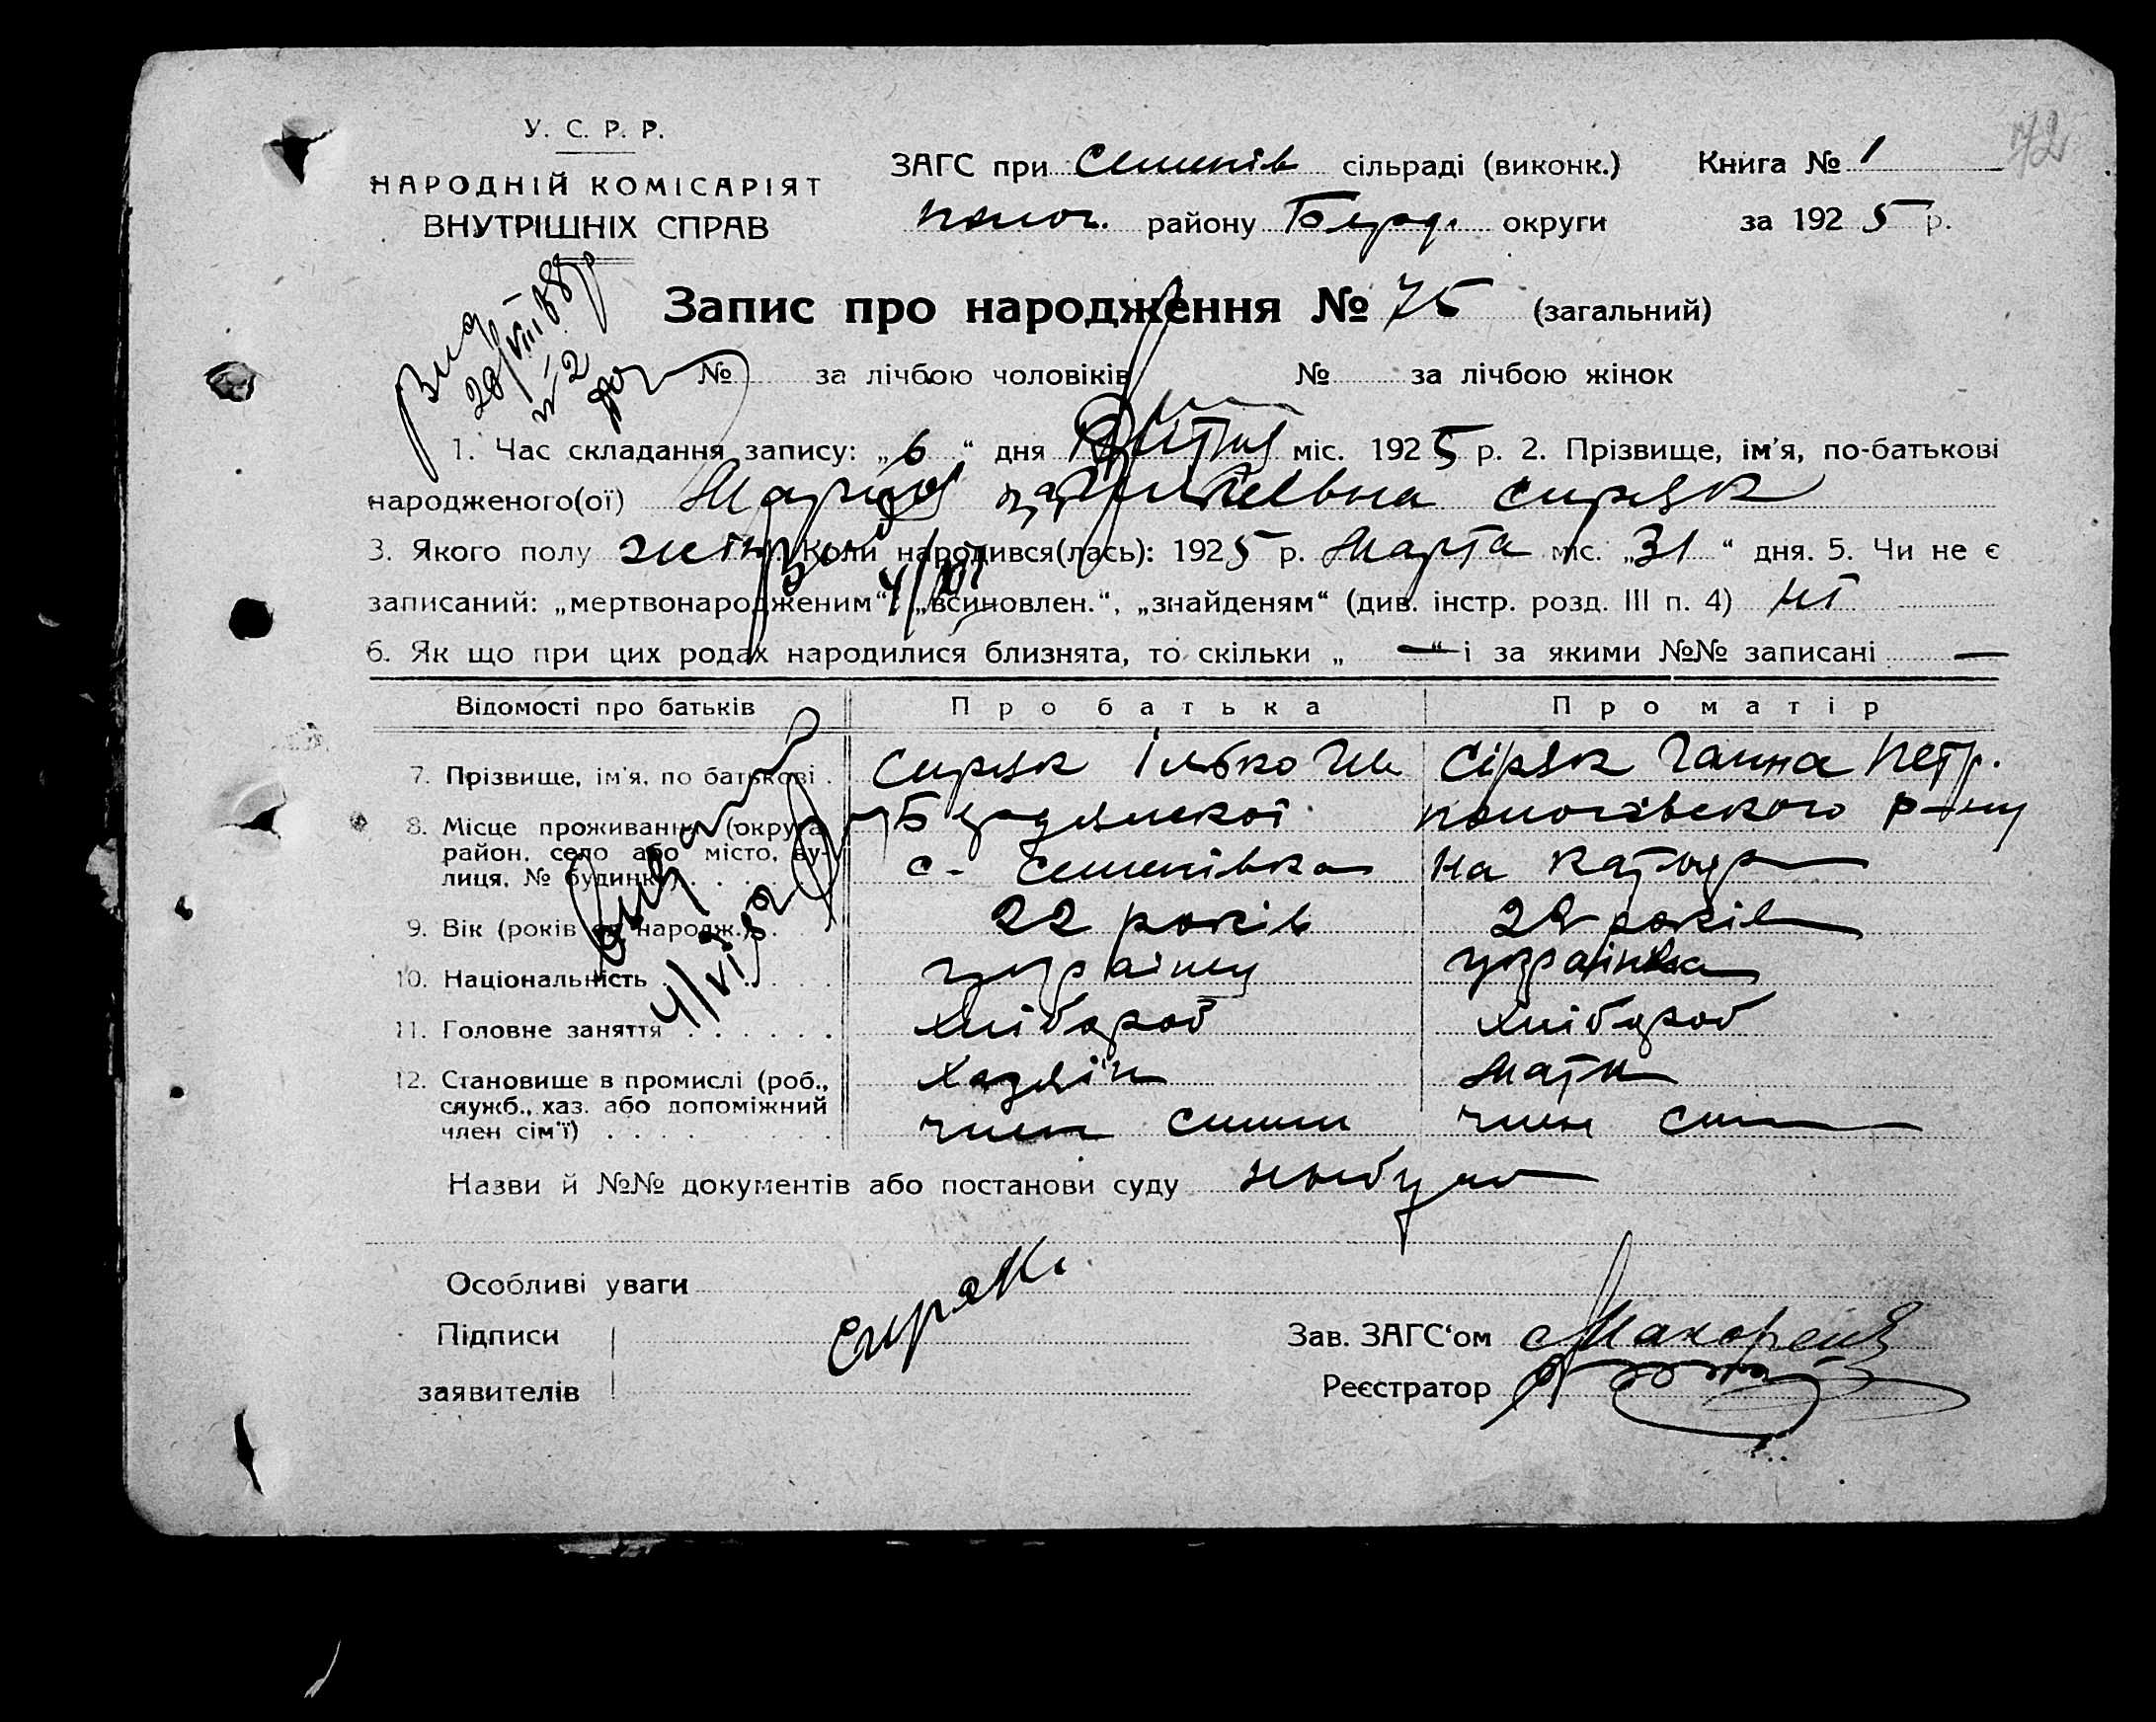 72
У. С. Р. Р.
НАРОДНІЙ КОМІСАРІЯТ
ВНУТРІШНІХ СПРАВ
ЗАГС при Семенів сільраді (виконк.) Книга № 1
полог. району Бердя. округи за 1925 р.
Запис про народження № 75 (загальний)
№ за лічбою чоловіків № за лічбою жінок
1. Час складання запису: „6“ дня міс. 1925 р. 2. Прізвище, ім'я, по-батькові
народженого(ої) Мария Сиряк
3. Якого полу жін. 4. Коли народився(лась): 1925 р. Марта міс. „31“ дня. 5. Чи не є
записаний: „мертвонародженим“, „всиновлен.“, „знайденям“ (див. інстр. розд. III п. 4) ні
6. Як що при цих родах народилися близнята, то скільки „—“ і за якими №№ записані —
Відомості про батьків Про батька Про матір
7. Прізвище, ім'я, по батькові . Сиряк Ілько Сіряк Ганна Петр.
8. Місце проживання (округа, Бердянскої пологівского р-ну
район, село або місто, ву-
лиця, № будинку) . . . с. Семенівка на
9. Вік (років від народж.) . . 22 років 22 років
10. Національність . . . . україниц українка
11. Головне заняття . . . . . . хлібороб хлібороб
12. Становище в промислі (роб., Хазяін Мати
служб., хаз. або допоміжний
член сім'ї) . . . . член симии член
Назви й №№ документів або постанови суду небуло
Особливі уваги
Підписи Сиряк. Зав. ЗАГС‘ом
заявителів Реєстратор